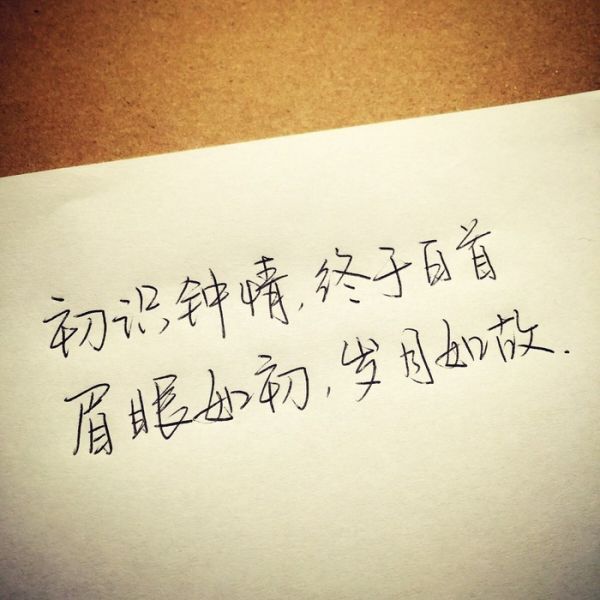 初识钟情，终于白首
眉眼如初，岁月如故．